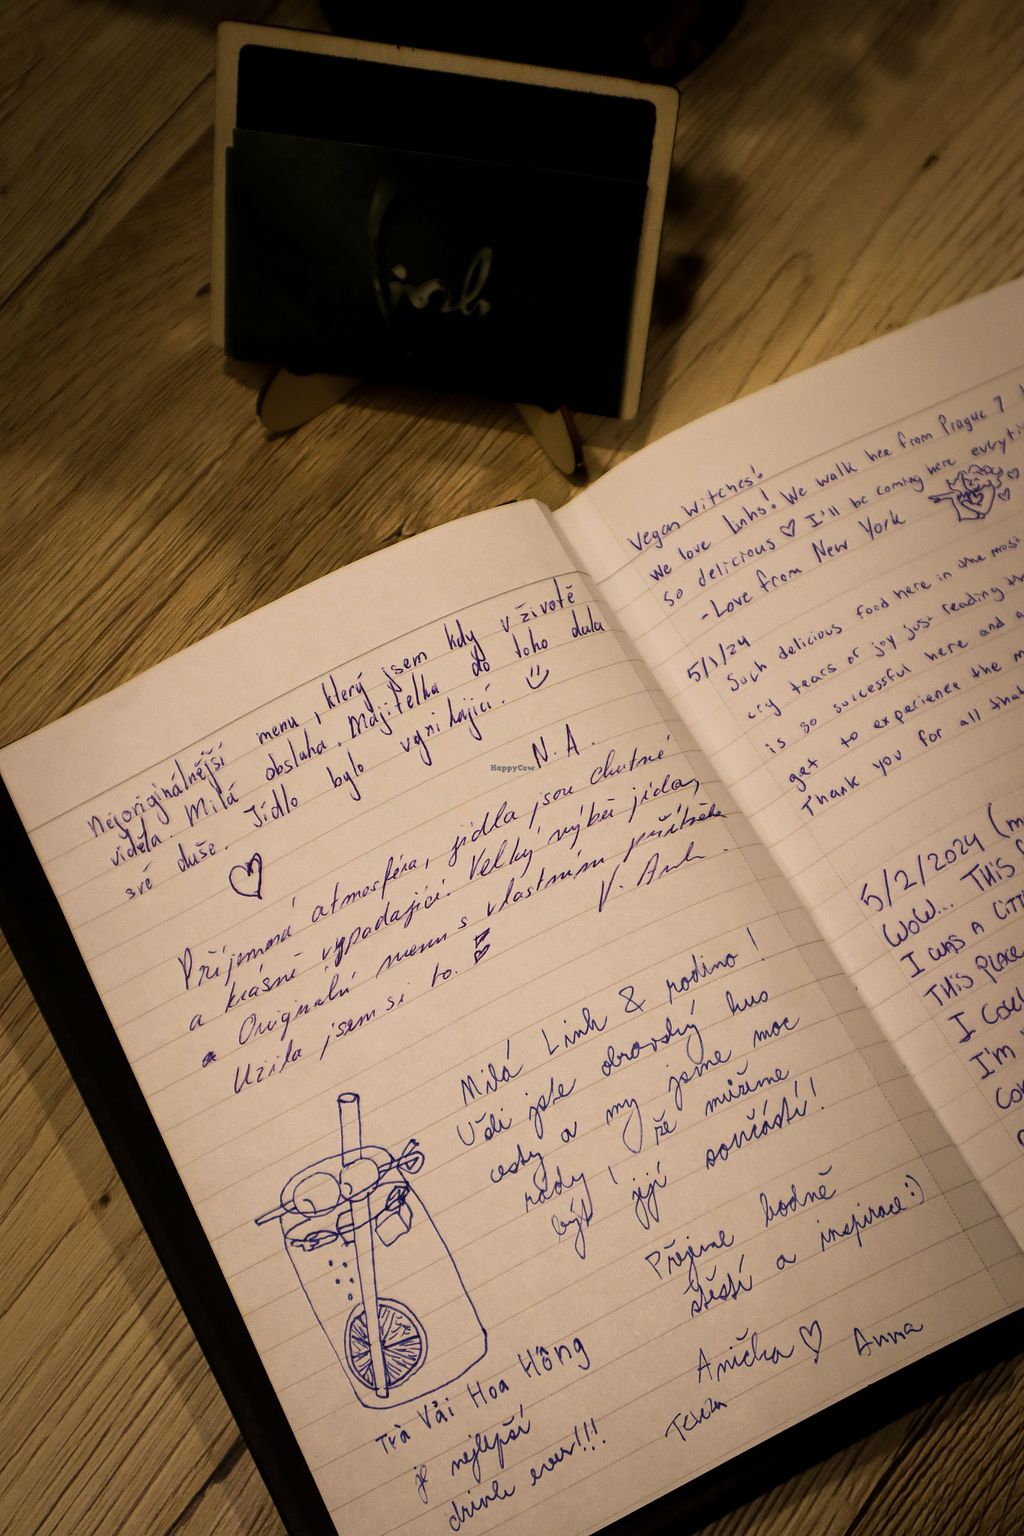 Linh
HappyCow
Nejoriginálnější menu, který jsem kdy v životě
viděla. Milá obsluha. Majitelka do toho dala
své duše. Jídlo bylo vynikající.
N. A.
Příjemná atmosféra, jídla jsou chutné
a krásně vypadající. Velký výběr jídla,
a Originální menu s vlastním příběhem
Užila jsem si to.
V. Anh.
Milá Linh & rodino!
Ušli jste obrovský kus
cesty a my jsme moc
rády, že můžeme
být její součástí!
Přejeme hodně
štěstí a inspirace :)
Anička Anna
Tereza
Trà Vải Hoa Hồng
je nejlepší
drink ever!!!
Vegan Witches!
We love Linhs! We walk here from Prague 7
so delicious I'll be coming here
-Love from New York
5/1/24
Such delicious food here in the most
cry tears of joy just reading
is so successful here and
get to experience the
Thank you for all that
5/2/2024
WOW... THIS
I WAS A
THIS PLACE
I
I'M